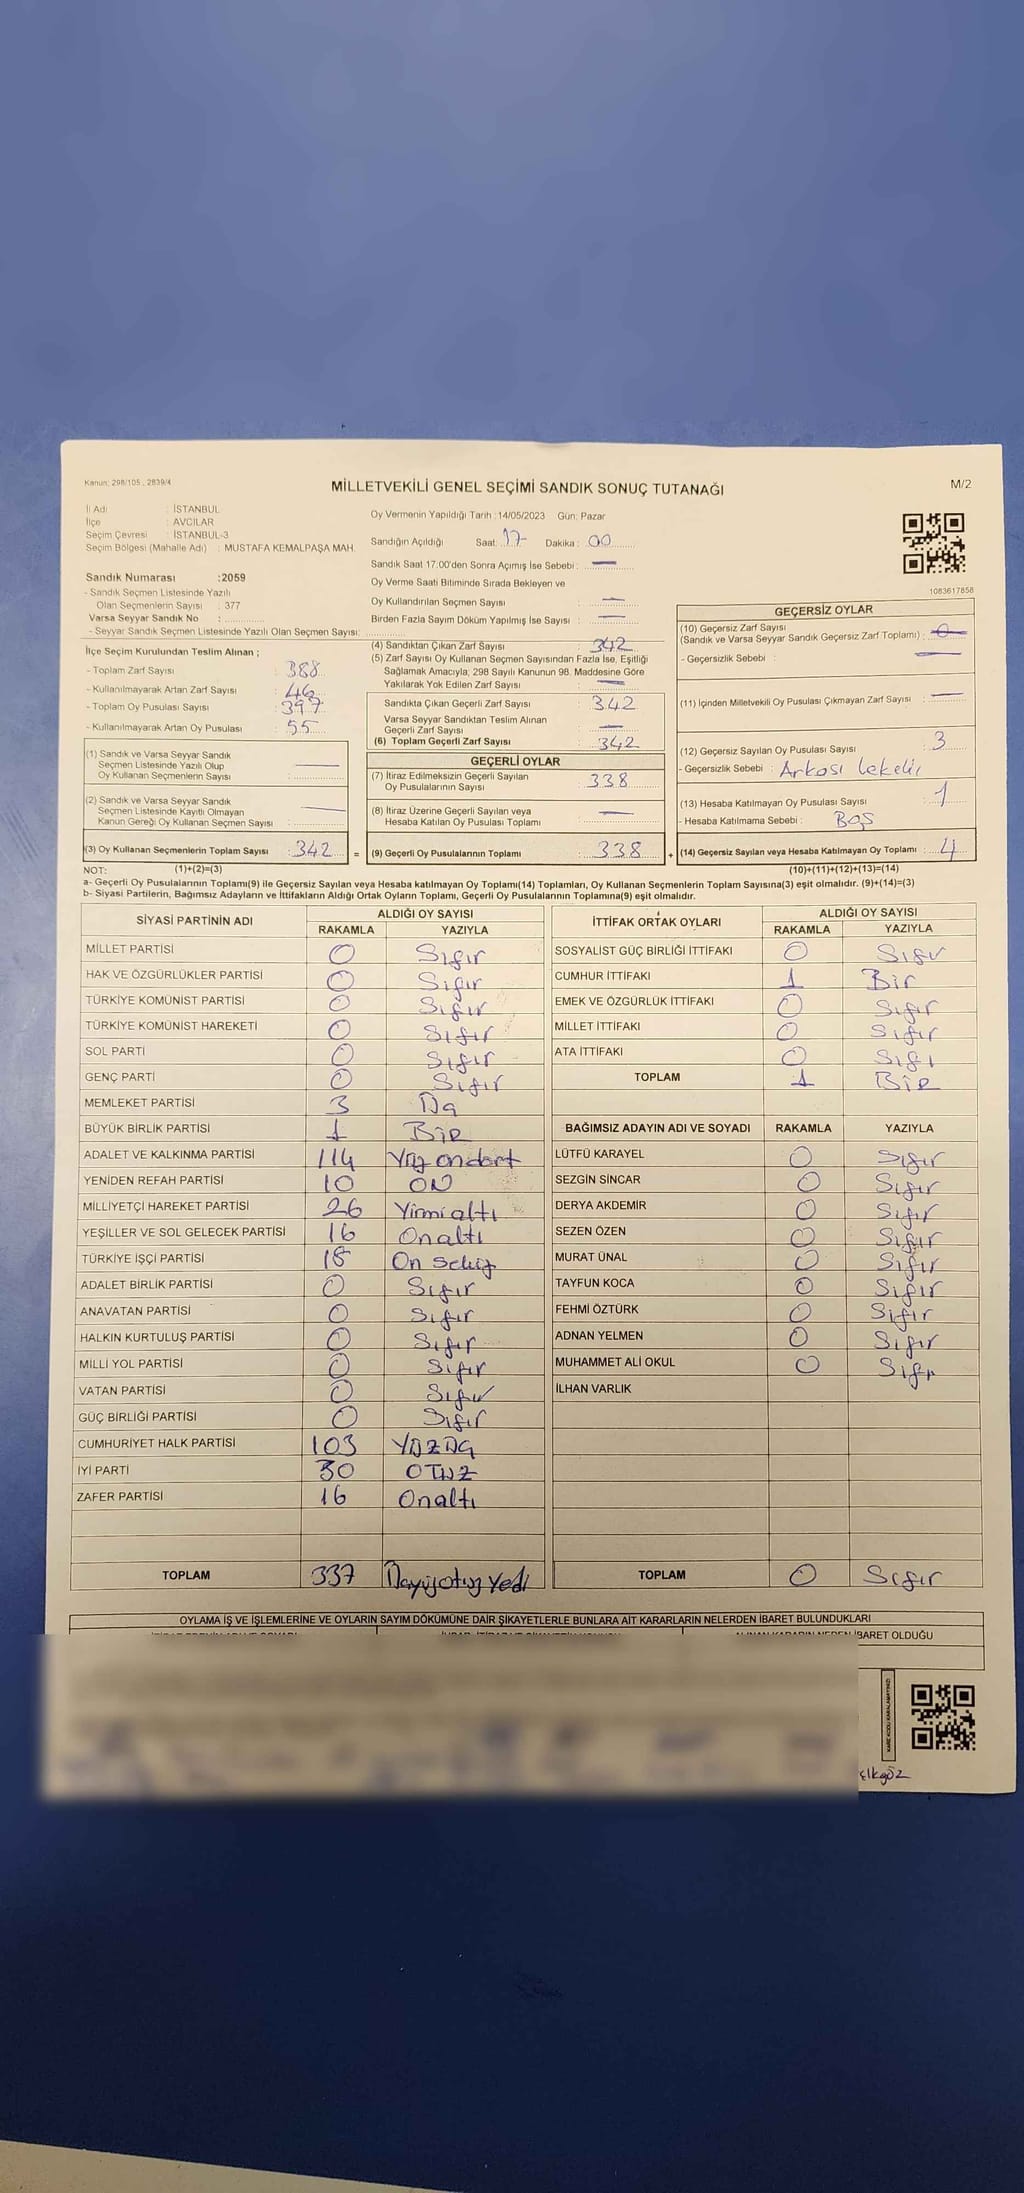 Kanun: 298/105 , 2839/4
MİLLETVEKİLİ GENEL SEÇİMİ SANDIK SONUÇ TUTANAĞI
M/2
İl Adı : İSTANBUL
İlçe : AVCILAR
Seçim Çevresi : İSTANBUL-3
Seçim Bölgesi (Mahalle Adı) : MUSTAFA KEMALPAŞA MAH.
Sandık Numarası :2059
- Sandık Seçmen Listesinde Yazılı
Olan Seçmenlerin Sayısı : 377
Varsa Seyyar Sandık No :
- Seyyar Sandık Seçmen Listesinde Yazılı Olan Seçmen Sayısı:
İlçe Seçim Kurulundan Teslim Alınan ;
- Toplam Zarf Sayısı : 388
- Kullanılmayarak Artan Zarf Sayısı : 46
- Toplam Oy Pusulası Sayısı : 397
- Kullanılmayarak Artan Oy Pusulası : 55
(1) Sandık ve Varsa Seyyar Sandık
Seçmen Listesinde Yazılı Olup
Oy Kullanan Seçmenlerin Sayısı : —
(2) Sandık ve Varsa Seyyar Sandık
Seçmen Listesinde Kayıtlı Olmayan
Kanun Gereği Oy Kullanan Seçmen Sayısı : —
(3) Oy Kullanan Seçmenlerin Toplam Sayısı : 342 =
NOT: (1)+(2)=(3)
Oy Vermenin Yapıldığı Tarih :14/05/2023 Gün: Pazar
Sandığın Açıldığı Saat: 17 Dakika : 00
Sandık Saat 17:00'den Sonra Açımış İse Sebebi : —
Oy Verme Saati Bitiminde Sırada Bekleyen ve
Oy Kullandırılan Seçmen Sayısı : —
Birden Fazla Sayım Döküm Yapılmış İse Sayısı : —
(4) Sandıktan Çıkan Zarf Sayısı : 342
(5) Zarf Sayısı Oy Kullanan Seçmen Sayısından Fazla İse, Eşitliği
Sağlamak Amacıyla; 298 Sayılı Kanunun 98. Maddesine Göre
Yakılarak Yok Edilen Zarf Sayısı : —
Sandıkta Çıkan Geçerli Zarf Sayısı : 342
Varsa Seyyar Sandıktan Teslim Alınan
Geçerli Zarf Sayısı : —
(6) Toplam Geçerli Zarf Sayısı : 342
GEÇERLİ OYLAR
(7) İtiraz Edilmeksizin Geçerli Sayılan
Oy Pusulalarının Sayısı : 338
(8) İtiraz Üzerine Geçerli Sayılan veya
Hesaba Katılan Oy Pusulası Toplamı : —
(9) Geçerli Oy Pusulalarının Toplamı : 338 +
1083617858
GEÇERSİZ OYLAR
(10) Geçersiz Zarf Sayısı
(Sandık ve Varsa Seyyar Sandık Geçersiz Zarf Toplamı) : 0
- Geçersizlik Sebebi : —
(11) İçinden Milletvekili Oy Pusulası Çıkmayan Zarf Sayısı : —
(12) Geçersiz Sayılan Oy Pusulası Sayısı : 3
- Geçersizlik Sebebi : Arkası lekeli
(13) Hesaba Katılmayan Oy Pusulası Sayısı : 1
- Hesaba Katılmama Sebebi : BOŞ
(14) Geçersiz Sayılan veya Hesaba Katılmayan Oy Toplamı : 4
(10)+(11)+(12)+(13)=(14)
a- Geçerli Oy Pusulalarının Toplamı(9) ile Geçersiz Sayılan veya Hesaba katılmayan Oy Toplamı(14) Toplamları, Oy Kullanan Seçmenlerin Toplam Sayısına(3) eşit olmalıdır. (9)+(14)=(3)
b- Siyasi Partilerin, Bağımsız Adayların ve İttifakların Aldığı Ortak Oyların Toplamı, Geçerli Oy Pusulalarının Toplamına(9) eşit olmalıdır.
SİYASİ PARTİNİN ADI ALDIĞI OY SAYISI
RAKAMLA YAZIYLA
MİLLET PARTİSİ 0 Sıfır
HAK VE ÖZGÜRLÜKLER PARTİSİ 0 Sıfır
TÜRKİYE KOMÜNİST PARTİSİ 0 Sıfır
TÜRKİYE KOMÜNİST HAREKETİ 0 Sıfır
SOL PARTİ 0 Sıfır
GENÇ PARTİ 0 Sıfır
MEMLEKET PARTİSİ 3 Üç
BÜYÜK BİRLİK PARTİSİ 1 BİR
ADALET VE KALKINMA PARTİSİ 114 Yüz ondört
YENİDEN REFAH PARTİSİ 10 ON
MİLLİYETÇİ HAREKET PARTİSİ 26 Yirmialtı
YEŞİLLER VE SOL GELECEK PARTİSİ 16 Onaltı
TÜRKİYE İŞÇİ PARTİSİ 18 On sekiz
ADALET BİRLİK PARTİSİ 0 Sıfır
ANAVATAN PARTİSİ 0 Sıfır
HALKIN KURTULUŞ PARTİSİ 0 Sıfır
MİLLİ YOL PARTİSİ 0 Sıfır
VATAN PARTİSİ 0 Sıfır
GÜÇ BİRLİĞİ PARTİSİ 0 Sıfır
CUMHURİYET HALK PARTİSİ 103 YÜZÜÇ
İYİ PARTİ 30 OTUZ
ZAFER PARTİSİ 16 Onaltı
TOPLAM 337 Üçyüzotuz yedi
İTTİFAK ORTAK OYLARI ALDIĞI OY SAYISI
RAKAMLA YAZIYLA
SOSYALİST GÜÇ BİRLİĞİ İTTİFAKI 0 Sıfır
CUMHUR İTTİFAKI 1 Bir
EMEK VE ÖZGÜRLÜK İTTİFAKI 0 Sıfır
MİLLET İTTİFAKI 0 Sıfır
ATA İTTİFAKI 0 Sıfı
TOPLAM 1 BİR
BAĞIMSIZ ADAYIN ADI VE SOYADI RAKAMLA YAZIYLA
LÜTFÜ KARAYEL 0 Sıfır
SEZGİN SİNCAR 0 Sıfır
DERYA AKDEMİR 0 Sıfır
SEZEN ÖZEN 0 Sıfır
MURAT ÜNAL 0 Sıfır
TAYFUN KOCA 0 Sıfır
FEHMİ ÖZTÜRK 0 Sıfır
ADNAN YELMEN 0 Sıfır
MUHAMMET ALİ OKUL 0 Sıfır
İLHAN VARLIK
TOPLAM 0 Sıfır
OYLAMA İŞ VE İŞLEMLERİNE VE OYLARIN SAYIM DÖKÜMÜNE DAİR ŞİKAYETLERLE BUNLARA AİT KARARLARIN NELERDEN İBARET BULUNDUKLARI
İBARET OLDUĞU
KARE KODU KARALAMAYINIZ